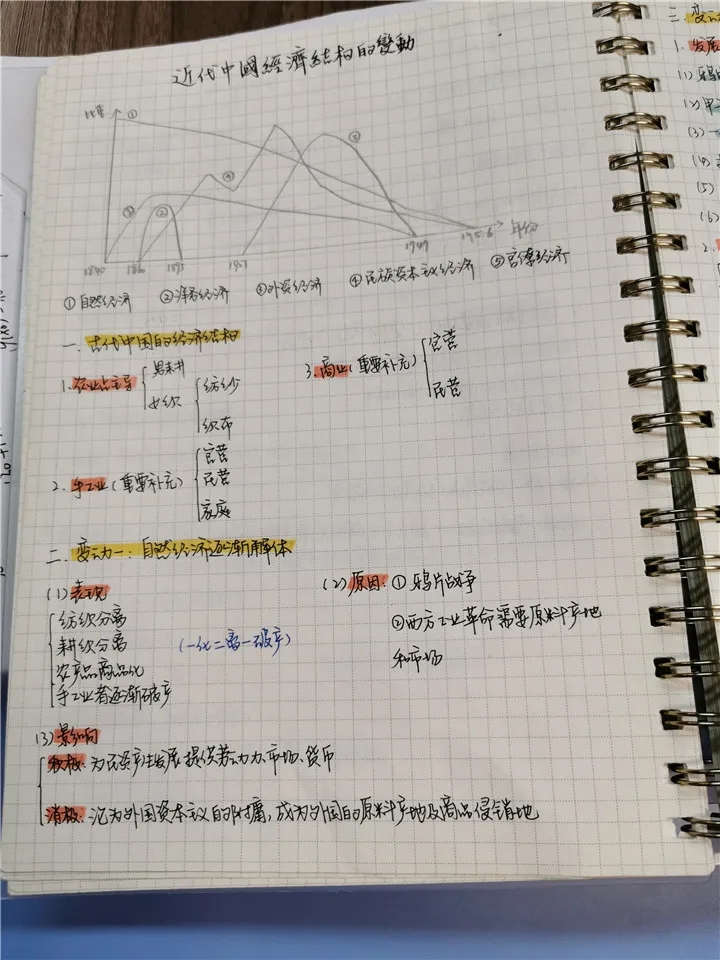 近代中國經濟結构的變動
比重
①
③
②
④
⑤
1840
1860
1895
1927
1949
1956
年份
①自然经济 ②洋务经济 ③外资经济 ④民族资本主义经济 ⑤官僚经济
一. 古代中国的经济结构
1.农业占主导
男耕
女织
纺纱
织布
2. 手工业(重要补充)
官营
民营
家庭
3. 商业(重要补充)
官营
民营
二. 变动一:自然经济逐渐解体
(1)表现
纺织分离
耕织分离
农产品商品化
手工业者逐渐破产
(一化二离一破产)
(2)原因:①鸦片战争
②西方工业革命需要原料产地
和市场
(3)影响
积极:为民资产生发展提供劳动力、市场、货币
消极:沦为外国资本主义的附庸,成为外国的原料产地及商品倾销地
二.
1. 发展
(1)鸦
(2)甲
(3)一
(4)
(5)
(6)
2.